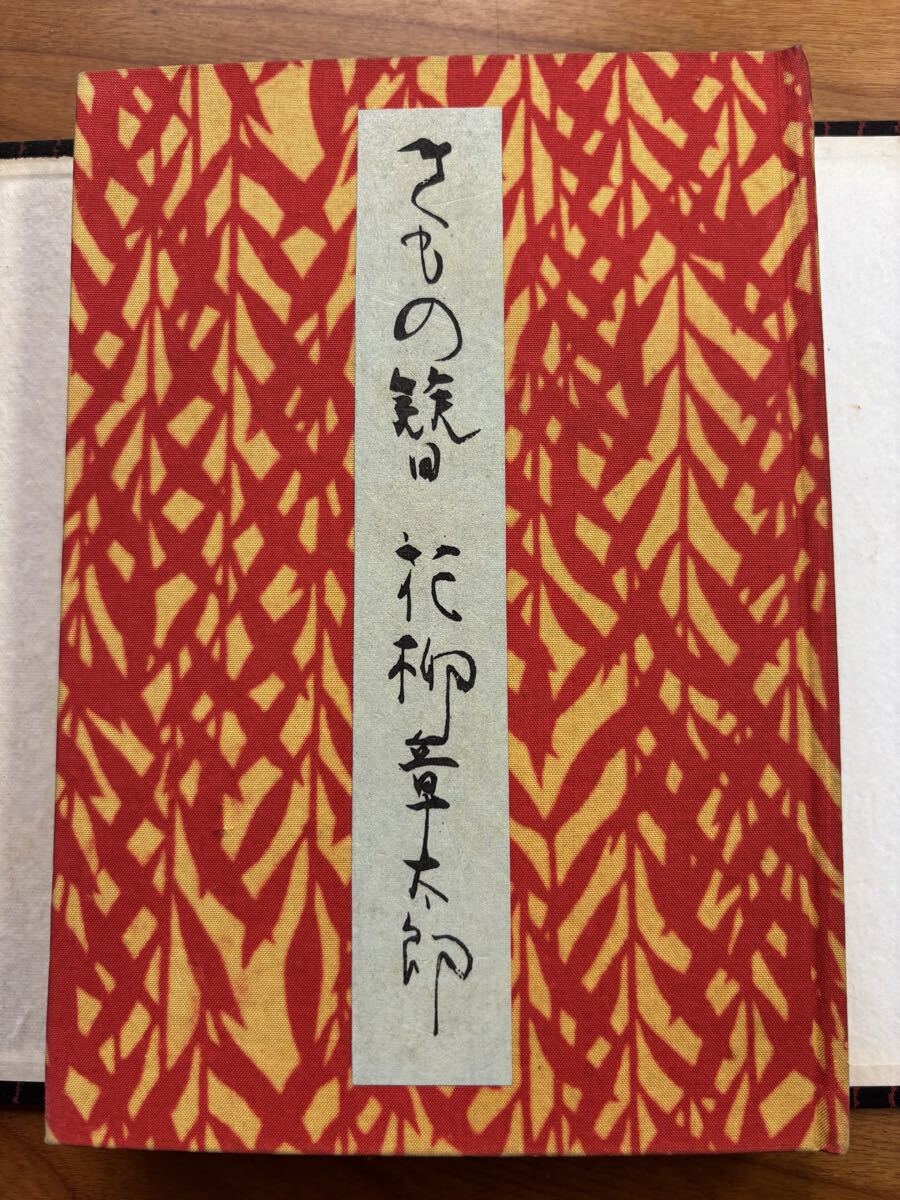 きもの簪 花柳章太郎